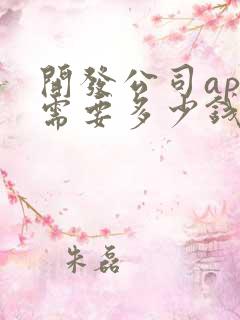 開發公司ap
需要多少錢
朱磊